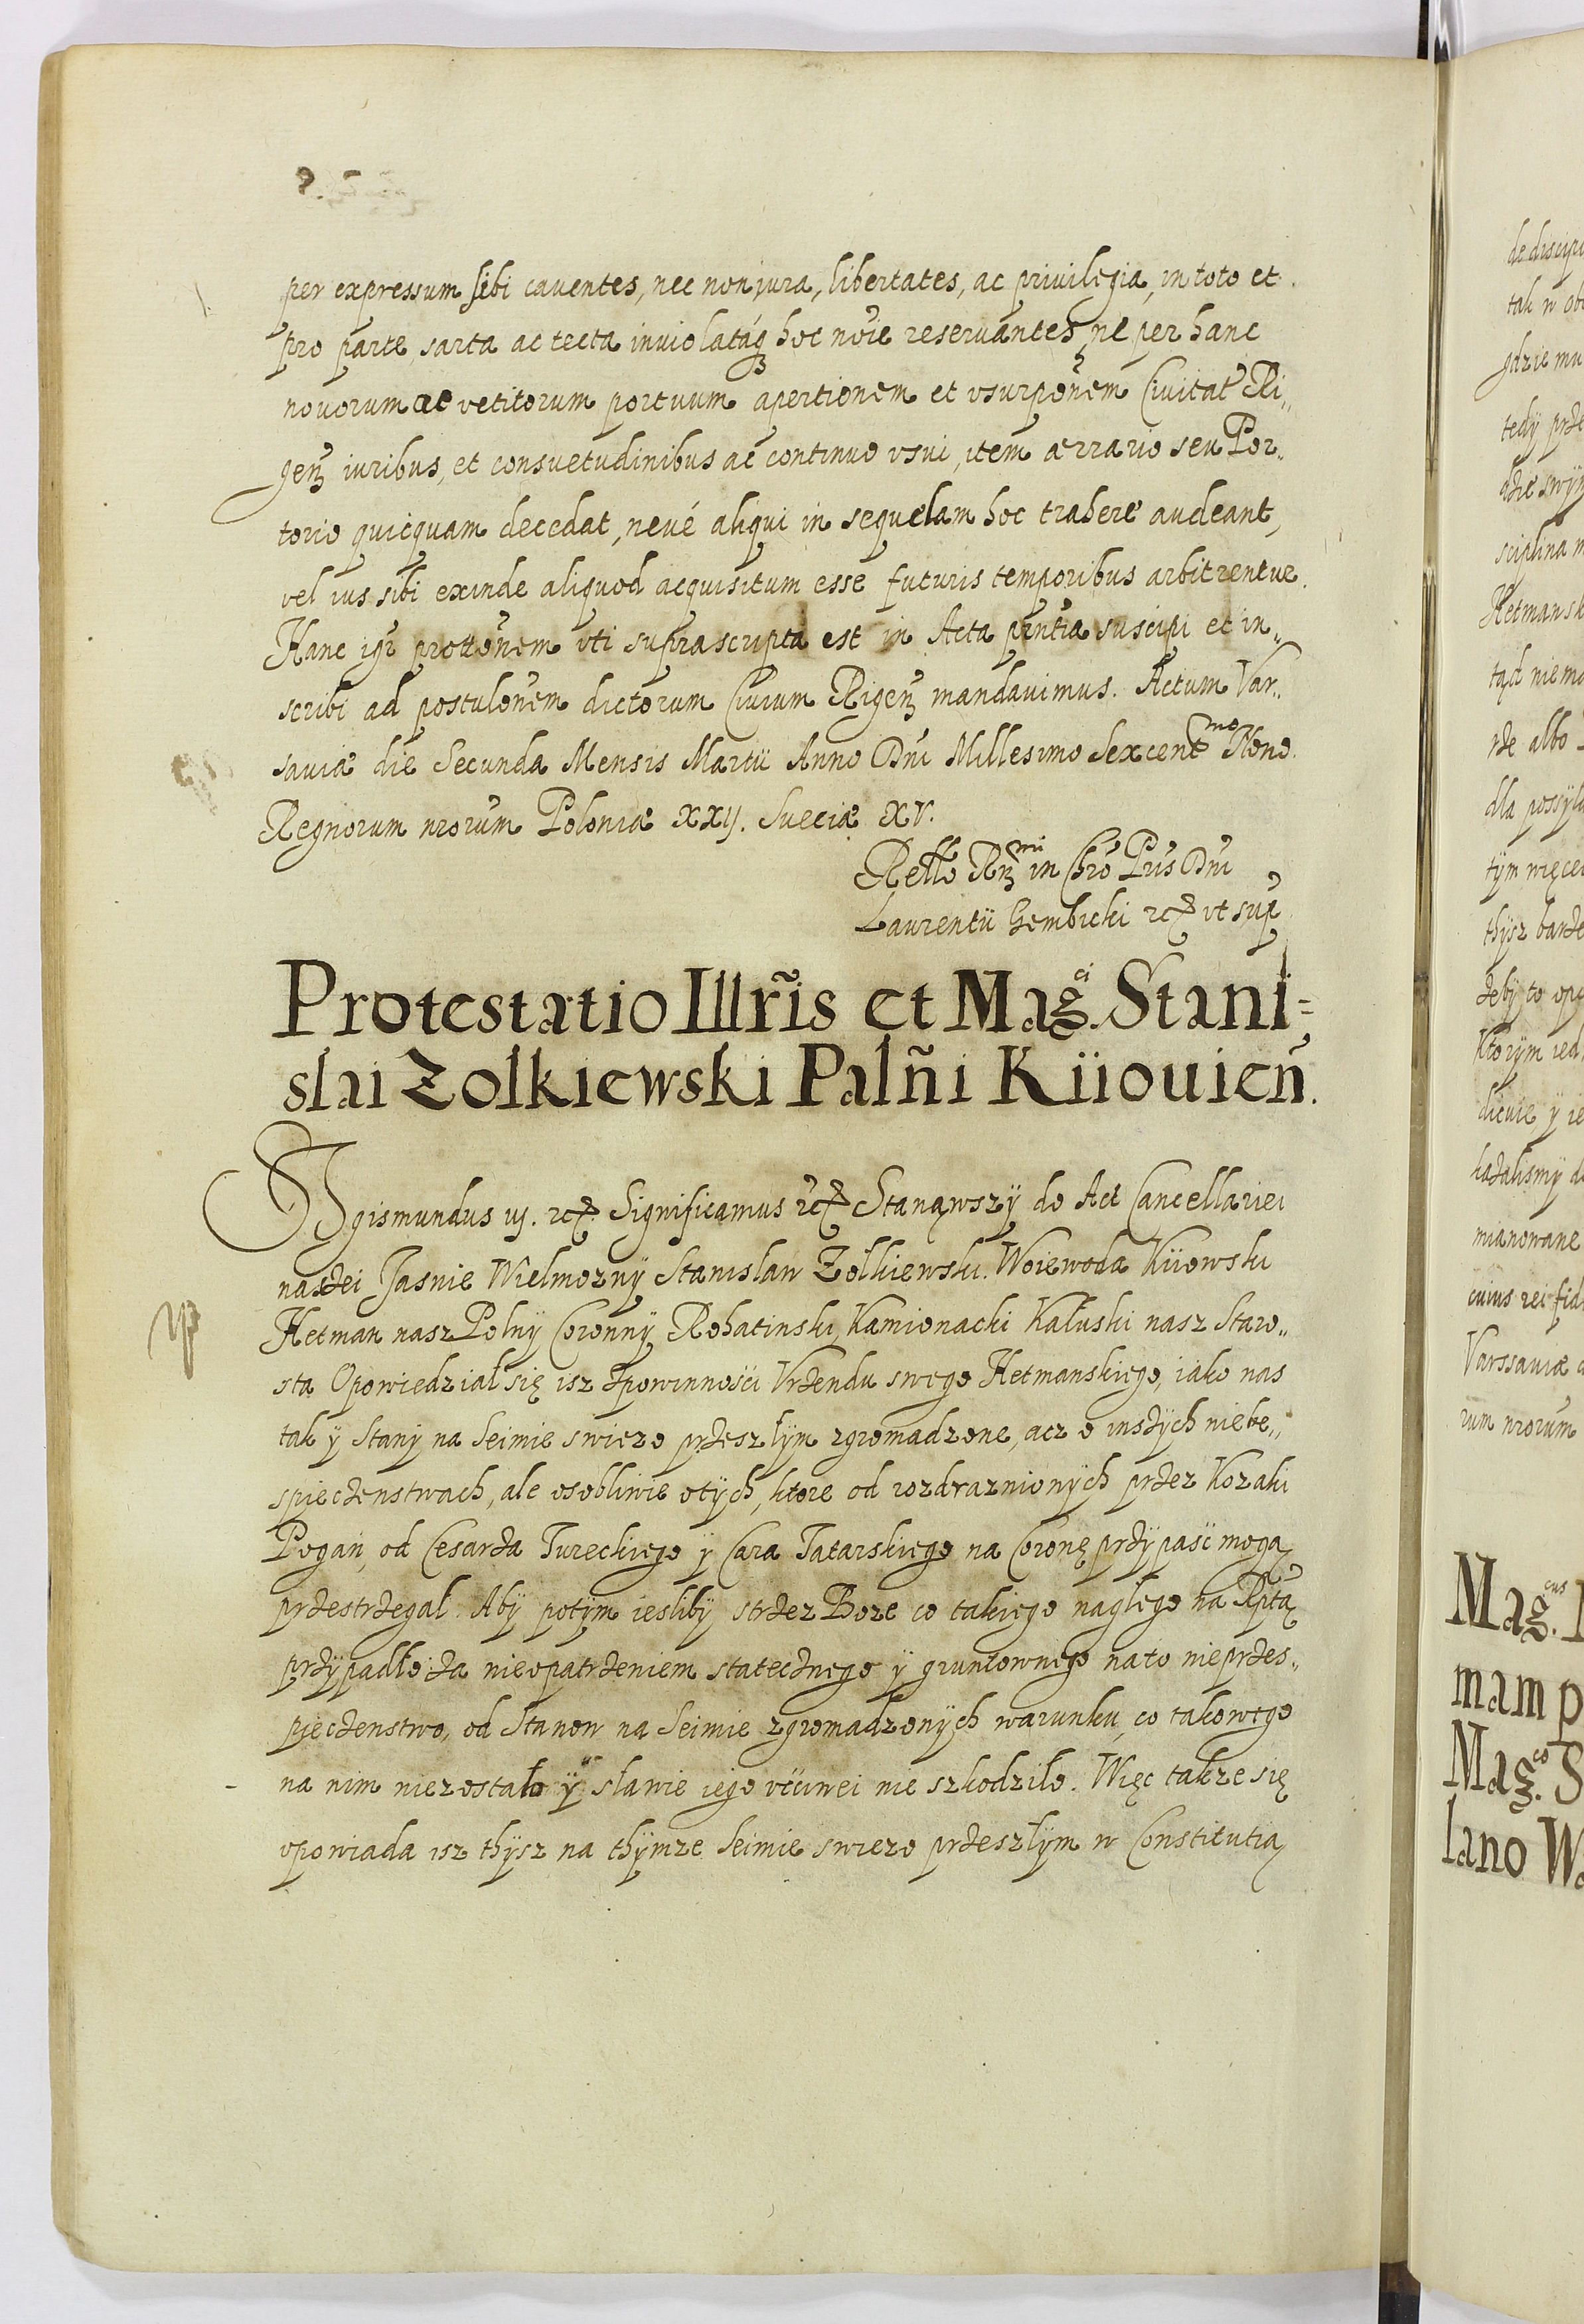 per expressum sibi caventes, nec non jura, libertates, ac privilegia, in toto et
pro parte, sarta ac tecta inviolataq₃ hoc noĩe reservantes, ne per hanc
novorum ac vetitorum portuum apertionem et vsurpõnem Civitat Ri„
geñ iuribus, et consvetudinibus ac continuo vsui, item ærrario seu Por„
torio quicquam decedat, nevé aliqui in sequelam hoc trahere audeant,
vel ius sibi exinde aliquod acquisitum esse futuris temporibus arbitrentur.
Hanc igr̃ prottõnem vti suprascripta est in Acta pñtia suscipi et in„
scribi ad postulõnem dictorum Civium Rigeñ mandavimus. Actum Var„
saviæ die Secunda Mensis Martii Anno Dñi Millesimo Sexcent^mo Nono.
Regnorum nrorum Poloniæ XXIJ. Sueciæ XV.
Rello R^mi in Chro Pris Dñi
Laurentii Gembicki etc ut sup
Protestatio Illr̃is et Mag^ci. Stani=
slai Zolkiewski Palñi Kiiovieñ.
Sigismundus iij. etc. Significamus etc Stanąwszÿ do Act Cancellariei
naszei Jasnie Wielmoznÿ Stanislaw Zolkiewski. Woiewoda Kiiowski
Hetman nasz Polnÿ Coronnÿ Rohatinski, Kamionacki Kałuski nasz Staro„
sta Opowiedział się isz zpowinności Vrzendu swego Hetmanskiego, iako nas
tak ÿ Stanÿ na Seimie swiezo przeszlÿm zgromadzone, acz o inszÿch niebe„
spieczenstwach, ale osobliwie otÿch, ktore od rozdraznionÿch przez Kozaki
Pogan, od Cesarza Tureckiego ÿ Cara Tatarskiego na Coronę przÿpaść mogą
przestrzegal. Abÿ potÿm ieslibÿ strzez Boze co takiego nagłego na Rptą
przÿpadło za nieopatrzeniem statecznego ÿ gruntownego nato nieprzes„
pieczenstwo, od Stanow na Seimie zgromadzonÿch warunku, co takowego
na nim niezostało ÿ sławie iego vcciwei nie szkodziło. Więc takze się
opowiada isz thÿsz na thÿmze Seimie swiezo przeszlÿm w Constitutią
tak w
gdzie mu
tedÿ prze
sciplina
Hetmansk
rze albo
tÿm więcei
thÿsz barze
zebÿ to
ktorÿm ied
mianowane
cuius rei fid
Varssaviæ
rum nrorum
Mag^cus.
mam p
Mag^co. S
lano Wa